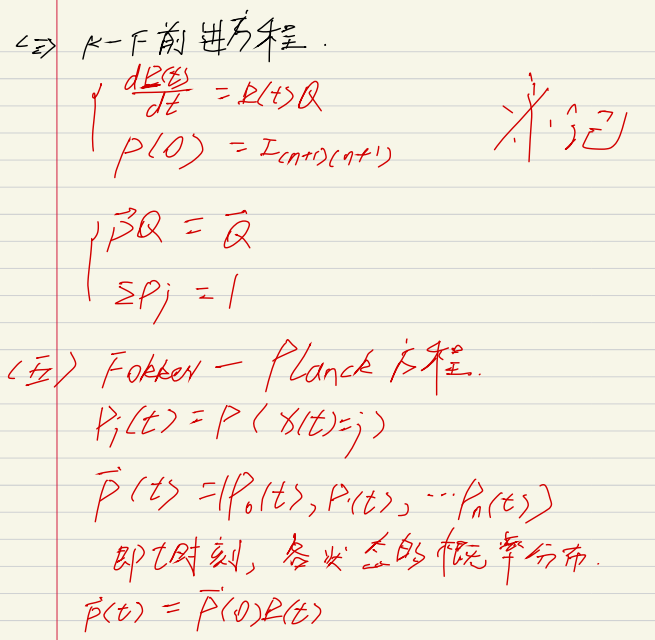 <三> K-F前进方程.
dP(t)/dt = P(t)Q
米记
P(0) = I(n+1)(n+1)
p⃗Q = Q⃗
ΣPj = 1
(五) Fokker - Planck 方程.
Pj(t) = P(X(t)=j)
p⃗(t) = (P₀(t), P₁(t), …Pn(t))
即t时刻, 各状态的概率分布.
p⃗(t) = p⃗(0)P(t)